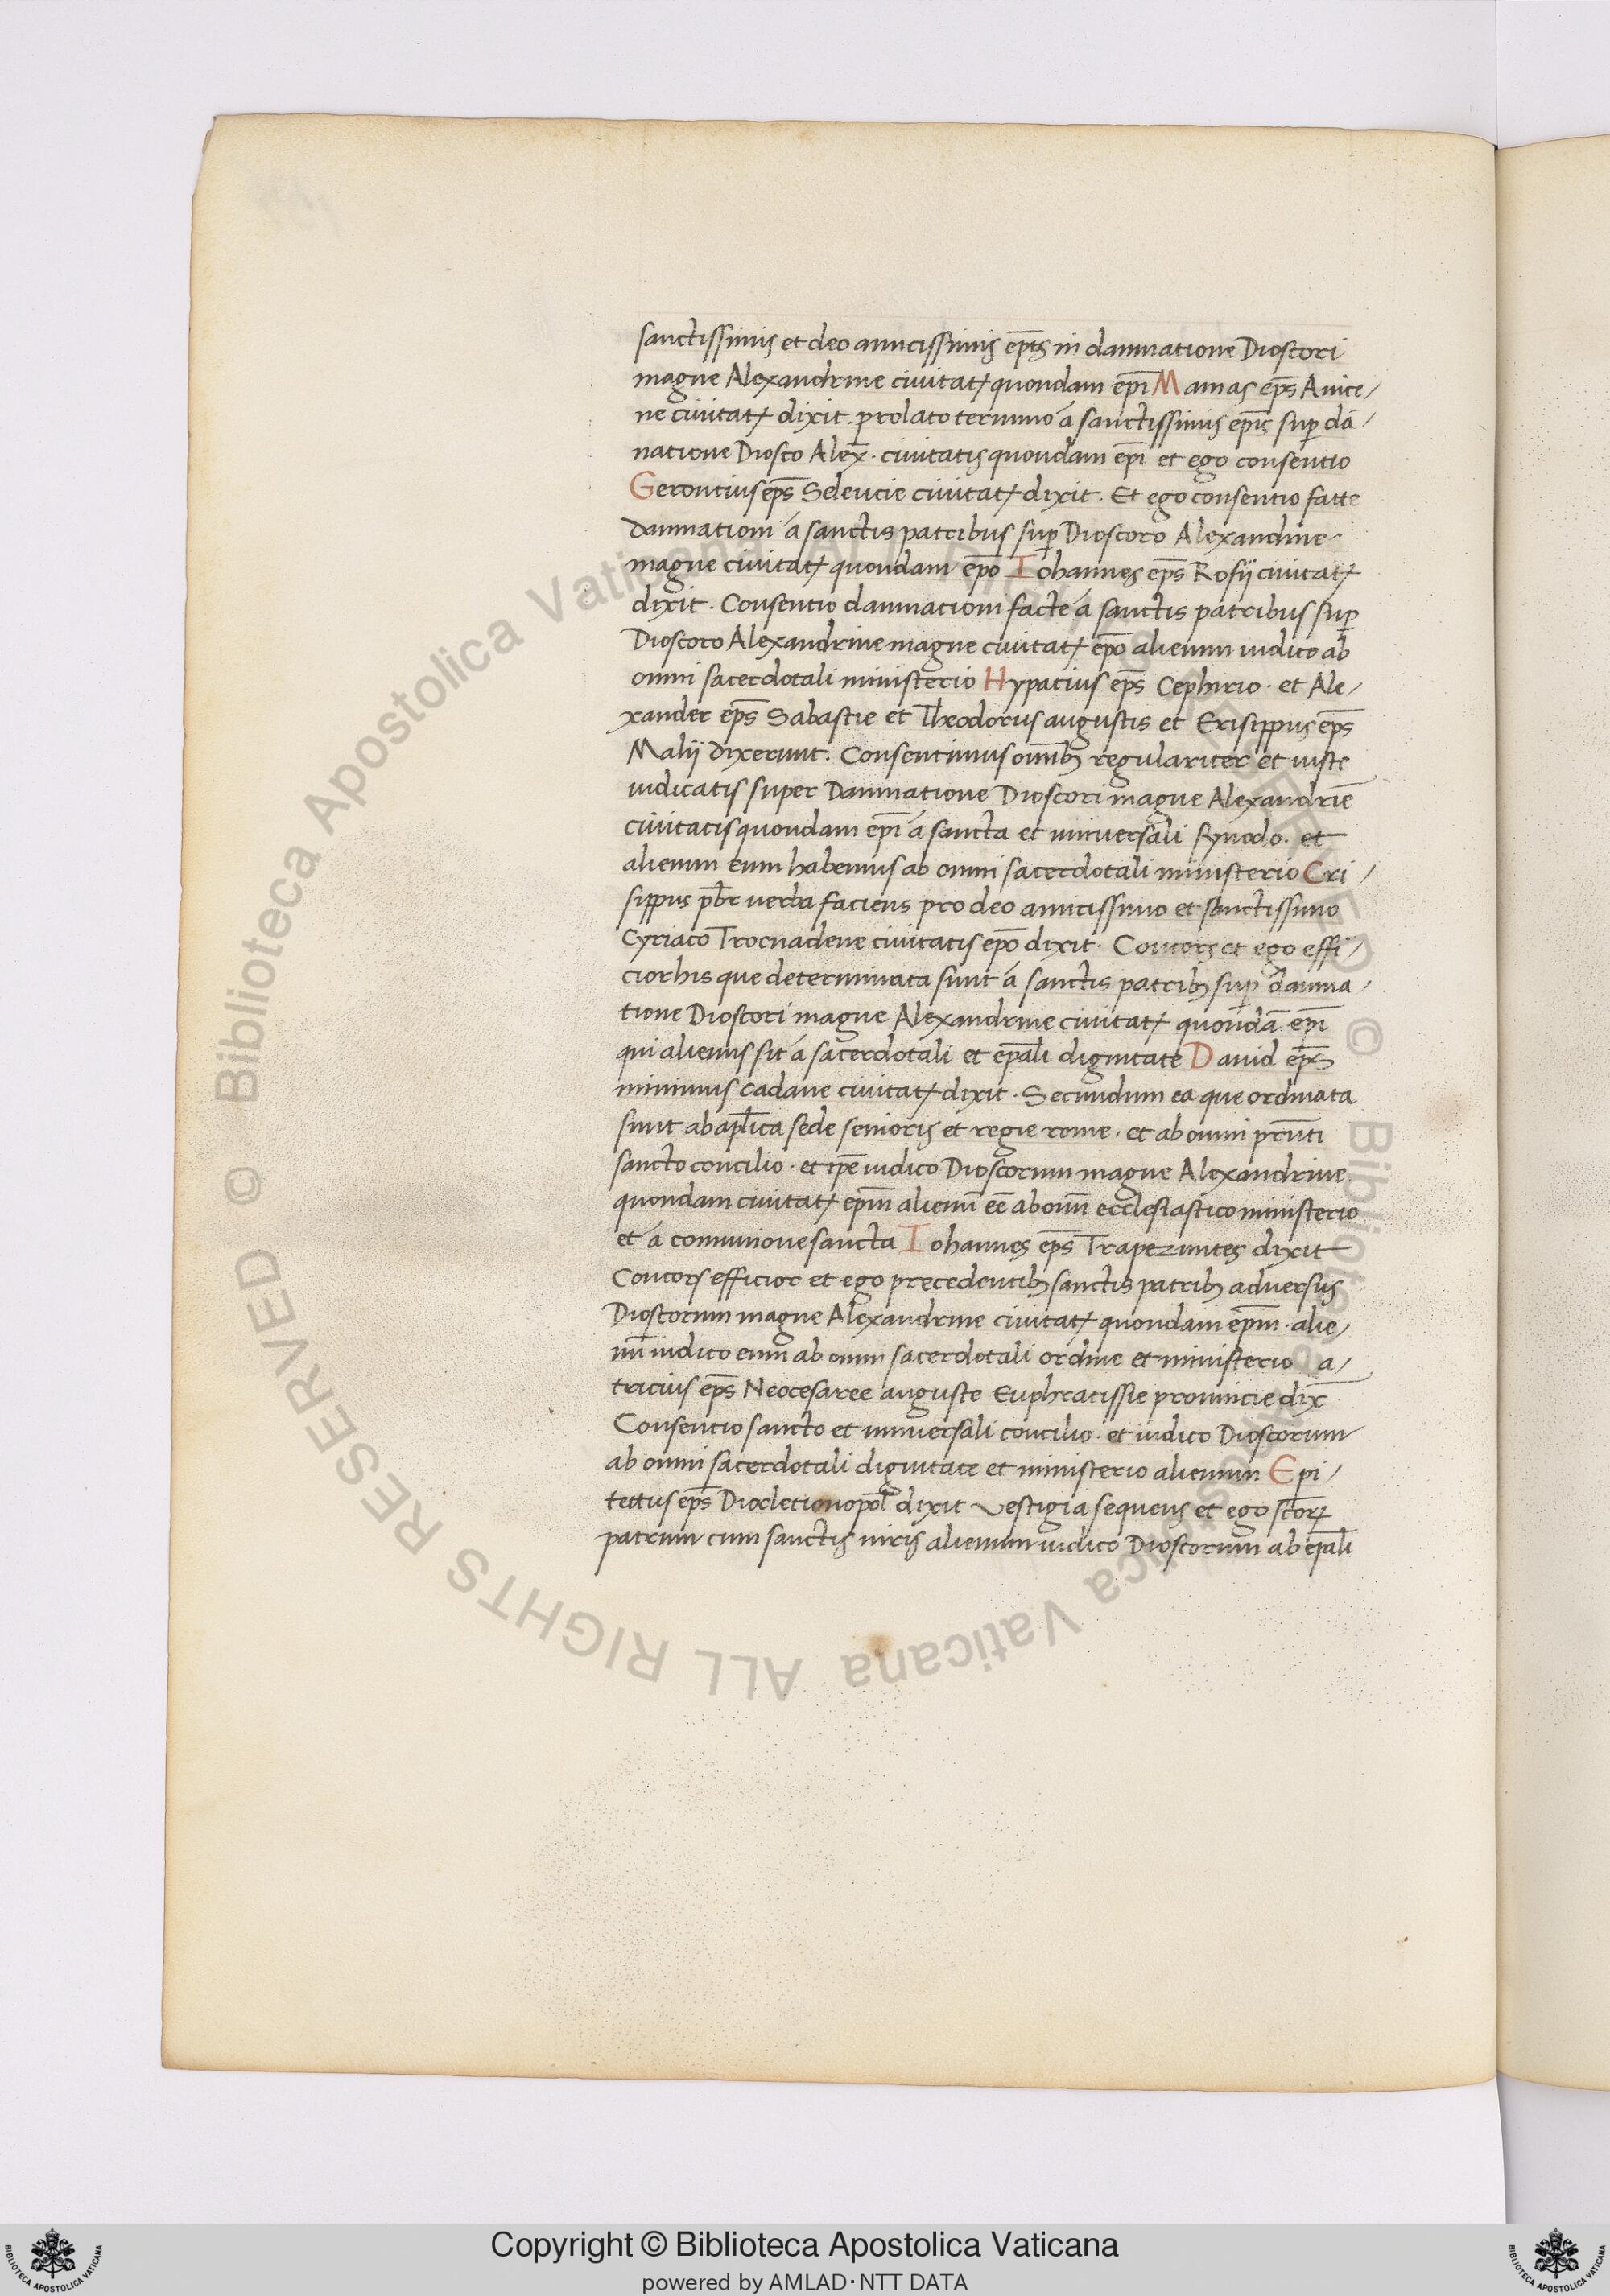 sanctissimis et deo amicissimis ep̄is in damnatione Dioscori
magne Alexandrine ciuitatꝭ quondam ep̄i Mamas ep̄s Anice/
ne ciuitatꝭ dixit. prolato termino á sanctissimis ep̄is sup̱ dā/
natione Diosco Alex̄. ciuitatis quondam ep̄i et ego consentio
Gerontius ep̄s Seleucie ciuitatꝭ dixit. Et ego consentio facte
damnationi á sanctis patribus sup̱ Dioscoro Alexandine
magne ciuitatꝭ quondam ep̄o Iohannes ep̄s Rosij ciuitatꝭ
dixit. Consentio damnationi facte á sanctis patribus sup̱
Dioscoro Alexandrine magne ciuitatꝭ ep̄o alienum iudico ab
omni sacerdotali ministerio Hypatius ep̄s Cephirio. et Ale/
xander ep̄s Sabastie et Theodorus augustis et Erisippus ep̄s
Malij dixerunt. Consentimus om̄ibꝫ regulariter et iuste
iudicatis super Damnatione Dioscori magne Alexandrie
ciuitatis quondam ep̄i á sancta et uniuersali synodo. et
alienum eum habemus ab omni sacerdotali ministerio Cri/
sippus pb̄r uerba faciens pro deo amicissimo et sanctissimo
Cyriaco Trocnadene ciuitatis ep̄o dixit. Concors et ego effi/
cior his que determinata sunt á sanctis patribꝫ sup̱ damna/
tione Dioscori magne Alexandrine ciuitatꝭ quondā ep̄i
qui alienus sit á sacerdotali et ep̄ali dignitate Dauid ep̄s
minimus cadane ciuitatꝭ dixit. Secundum ea que ordinata
sunt ab ap̄lica sede senioris et regie rome. et ab omni prn̄ti
sancto concilio. et ip̄e iudico Dioscorum magne Alexandrine
quondam ciuitatꝭ ep̄m alienū eē ab om̄i ecclesiastico ministerio
et á comunione sancta Iohannes ep̄s Trapezuntes dixit
Concors efficior et ego precedentibꝫ sanctis patribꝫ aduersus
Dioscorum magne Alexandrine ciuitatꝭ quondam ep̄m. alie/
nū iudico eum ab omni sacerdotali ordine et ministerio a/
tricius ep̄s Neocesaree auguste Euphratissie prouincie dix̄
Consentio sancto et uniuersali concilio. et iudico Dioscorum
ab omni sacerdotali dignitate et ministerio alienum Epi/
tettus ep̄s Diocletionopol̄ dixit Vestigia sequens et ego sc̄orꝝ
patrum cum sanctis uiris alienum iudico Dioscorum ab ep̄ali
Copyright © Biblioteca Apostolica Vaticana
powered by AMLAD·NTT DATA
© Biblioteca Apostolica Vaticana ALL RIGHTS RESERVED © Biblioteca Apostolica Vaticana ALL RIGHTS RESERVED
BIBLIOTECA APOSTOLICA VATICANA
BIBLIOTECA APOSTOLICA VATICANA